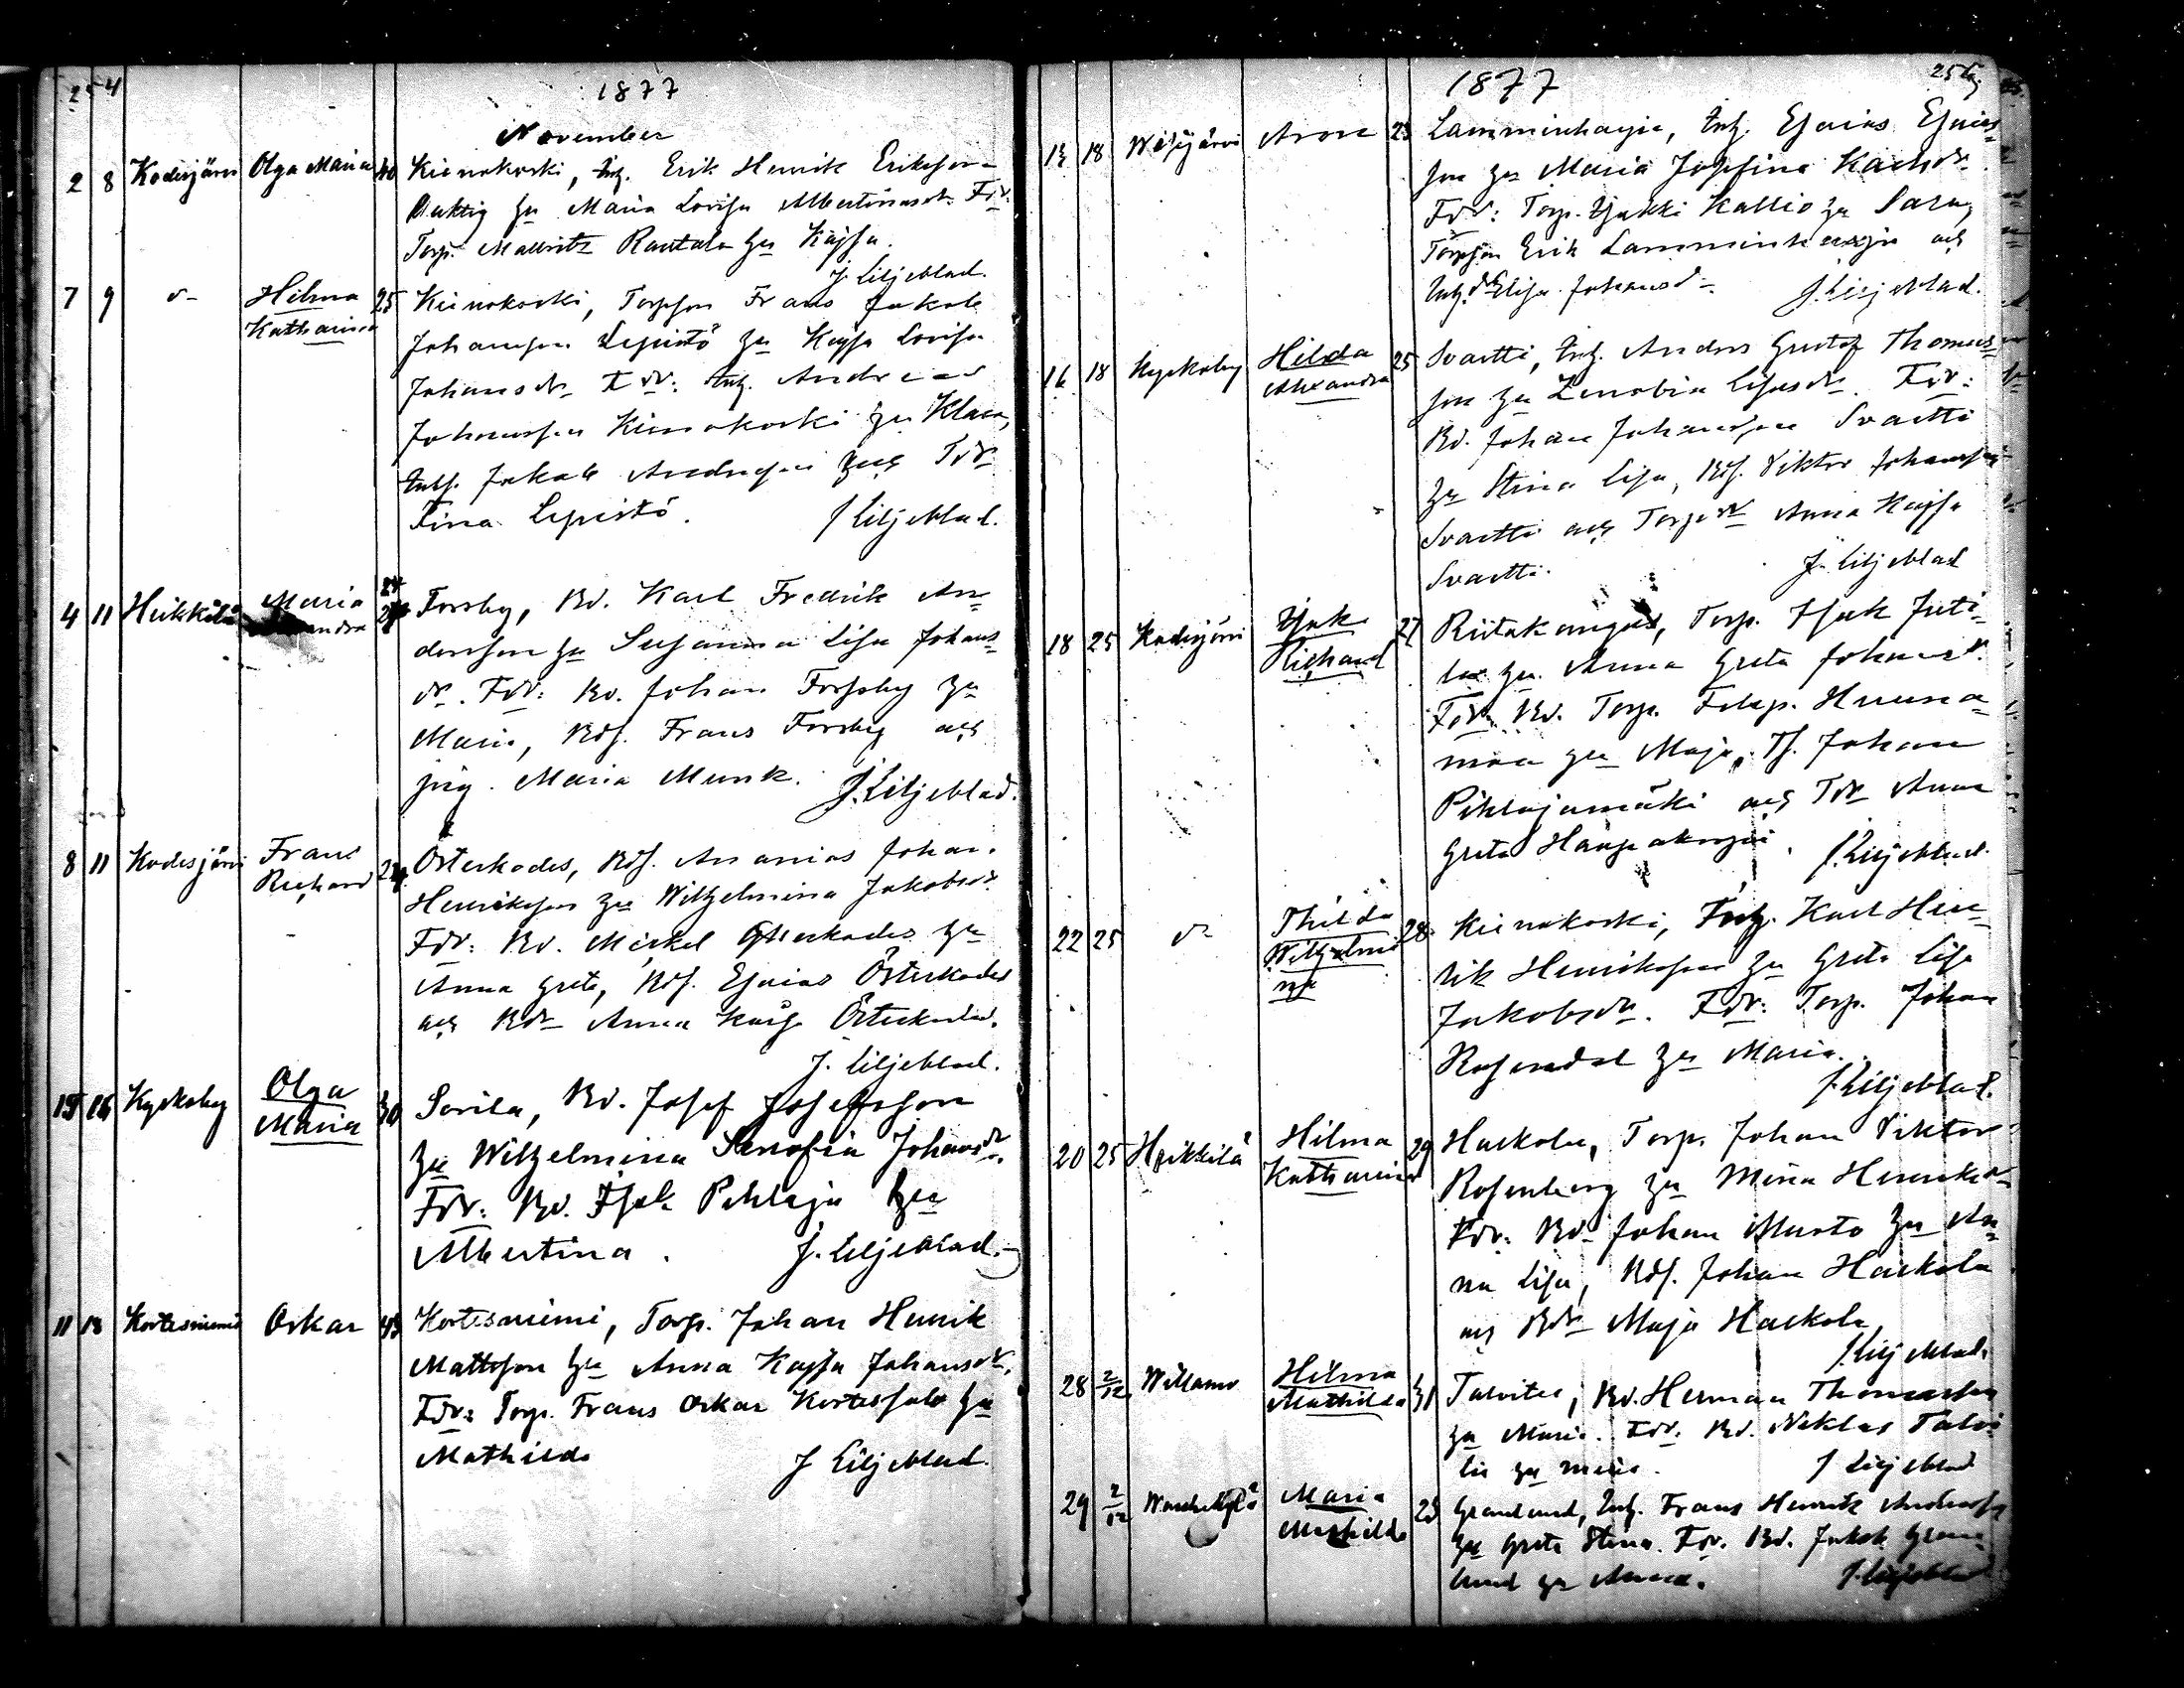 254
1877
November
2 8 Kodesjärvi Olga Maria 40 Kienokoski, Inh. Erik Henrik Eriksson
Maria Lovisa Albertinasdr. Fdr:
Torp. Mauritz Rautala hu Kajsa.
J. Liljeblad.
7 9 d- Hilma Katharina 25 Kienokoski, Torpson Frans Jakob
Johansson Lepistö hu Kajsa Lovisa
Johansdr. Fdr: Inh. Andreas
Johansson Kienokoski hu Klara,
Inh. Jakob Andersson och Tdr
Fina Lepistö. J Liljeblad.
4 11 Heikkilä Maria 24 Forsby, Bd. Karl Fredrik An-
dersson hu Susanna Lisa Johans-
dr. Fdr: Bd. Johan Forssby hu
Maria, Bds. Frans Forsby och
pig. Maria Munk. J. Liljeblad.
8 11 Kodesjärvi Frans Richard 24 Österkodes, Bds. Ananias Johan
Henriksson hu Wilhelmina Jakobsdr.
Fdr: Bd. Mickel Österkodes hu
Anna Greta, Bds. Esaias Österkodes
och Bdr Anna Kajsa Österkodes.
J. Liljeblad.
15 16 Kyrkoby Olga Maria 30 Sorila, Bd. Josef Josefsson
hu Wilhelmina Senofia Johansdr.
Fdr: Bd. Isak Pihlaja hu
Albertina. J. Liljeblad.
11 18 Kortesniemi Oskar 43 Kortesniemi, Torp. Johan Henrik
Mattsson hu Anna Kajsa Johansdr.
Fdr: Torp. Frans Oskar Kortessalo hu
Mathilda J Liljeblad.
1877
13 18 Aron 23 Lamminharju, Inh. Esaias Esaias-
son hu Maria Josefina Karlsdr.
Fdr: Torp. Isakki Kallio hu Sara,
Torpson Erik Lamminharju och
Inh.dr Lisa Johansdr. J. Liljeblad.
16 18 Kyrkoby Hilda Alexandra 25 Svartti, Inh. Anders Gustaf Thomas-
son hu Zenobia Lisasdr. Fdr:
Bd. Johan Johansson Svartti
hu Stina Lisa, Bds. Viktor Johansson
Svartti och Torpdr Anna Kajsa
Svartti. J. Liljeblad
18 25 Kodesjärvi Isak Richard 27 Riitakangas, Torp. Isak Juti-
la hu Anna Greta Johansdr.
Fdr: Torp. Filip. Huuna-
maa hu Maja, Ts. Johan
Pihlajamäki och Tdr Anna
Greta J. Liljeblad.
22 25 d- Thilda Wilhelmi
na 28 Kienokoski, Inh. Karl Hen-
rik Henriksson hu Greta Lisa
Jakobsdr. Fdr: Torp. Johan
Rosendal hu Maria.
J. Liljeblad.
20 25 Heikkilä Hilma Katharina 29 Harkola, Torp. Johan Viktor
Rosenberg hu Mina Henriksdr
Fdr: Bd. Johan Musto hu An-
na Lisa, Bds. Johan Harkola
och Bdr Maja Harkola,
J. Liljeblad.
28 2/12 Willamo Hilma Mathilda 31 Talvitie, Bd. Herman Thomasson
hu Maria. Fdr. Bd. Niklas Talvi-
tie hu Maria. J Liljeblad
29 2/12 Maria Mathilda 28 Granlund, Inh. Frans Henrik Andersson
hu Greta Stina. Fdr. Bd. Jakob Gran-
lund hu Anna. J. Liljeblad